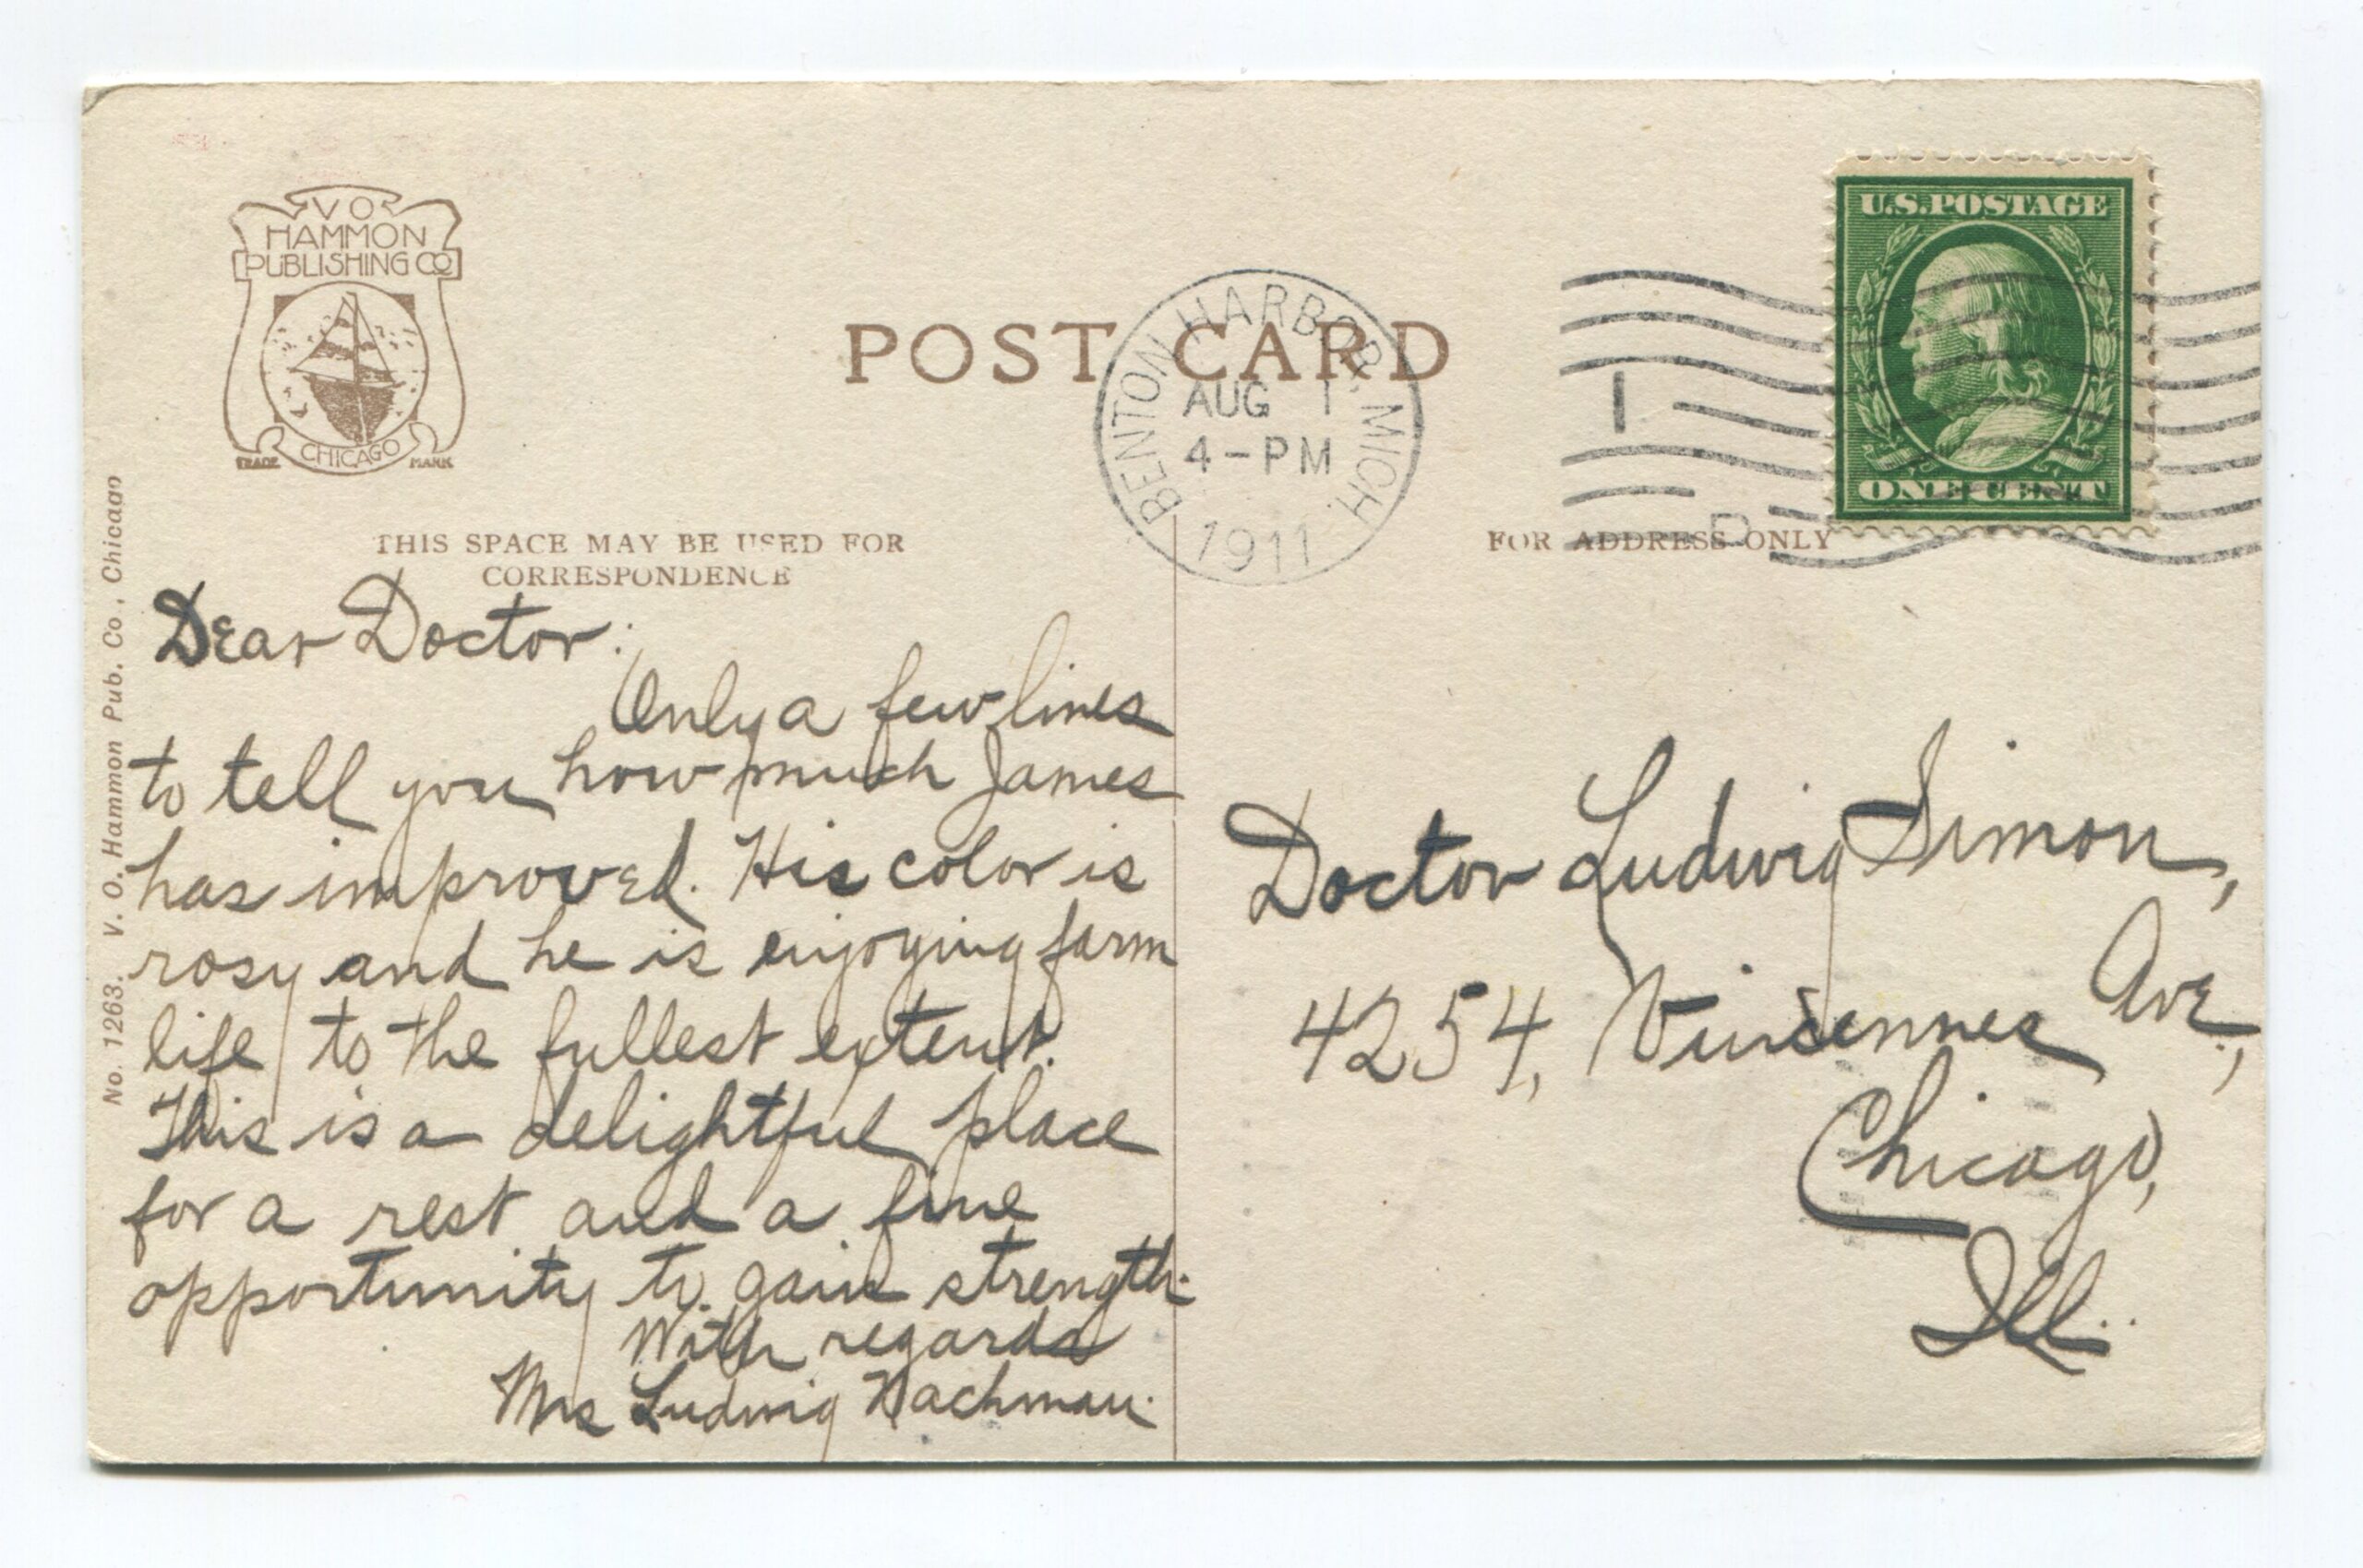 V O
HAMMON
PUBLISHING CO
CHICAGO
TRADE MARK
POST CARD
BENTON HARBOR, MICH.
AUG 1
4-PM
1911
U.S. POSTAGE
ONE CENT
1
D
THIS SPACE MAY BE USED FOR
CORRESPONDENCE
FOR ADDRESS ONLY
No. 1263. V. O. Hammon Pub. Co., Chicago
Dear Doctor:
Only a few lines
to tell you how much James
has improved. His color is
rosy and he is enjoying farm
life to the fullest extent.
This is a delightful place
for a rest and a fine
opportunity to gain strength.
With regards
Mrs Ludwig Nachman.
Doctor Ludwig Simon,
4254, Vincennes Ave.,
Chicago,
Ill.